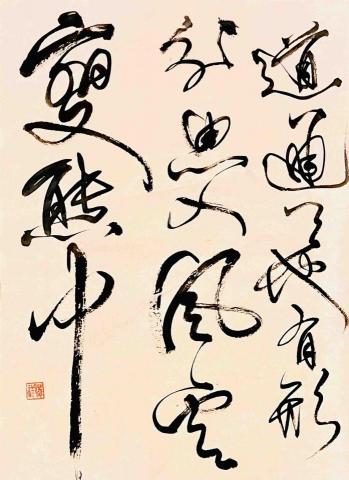 道通天地有形
外思入風雲
變態中